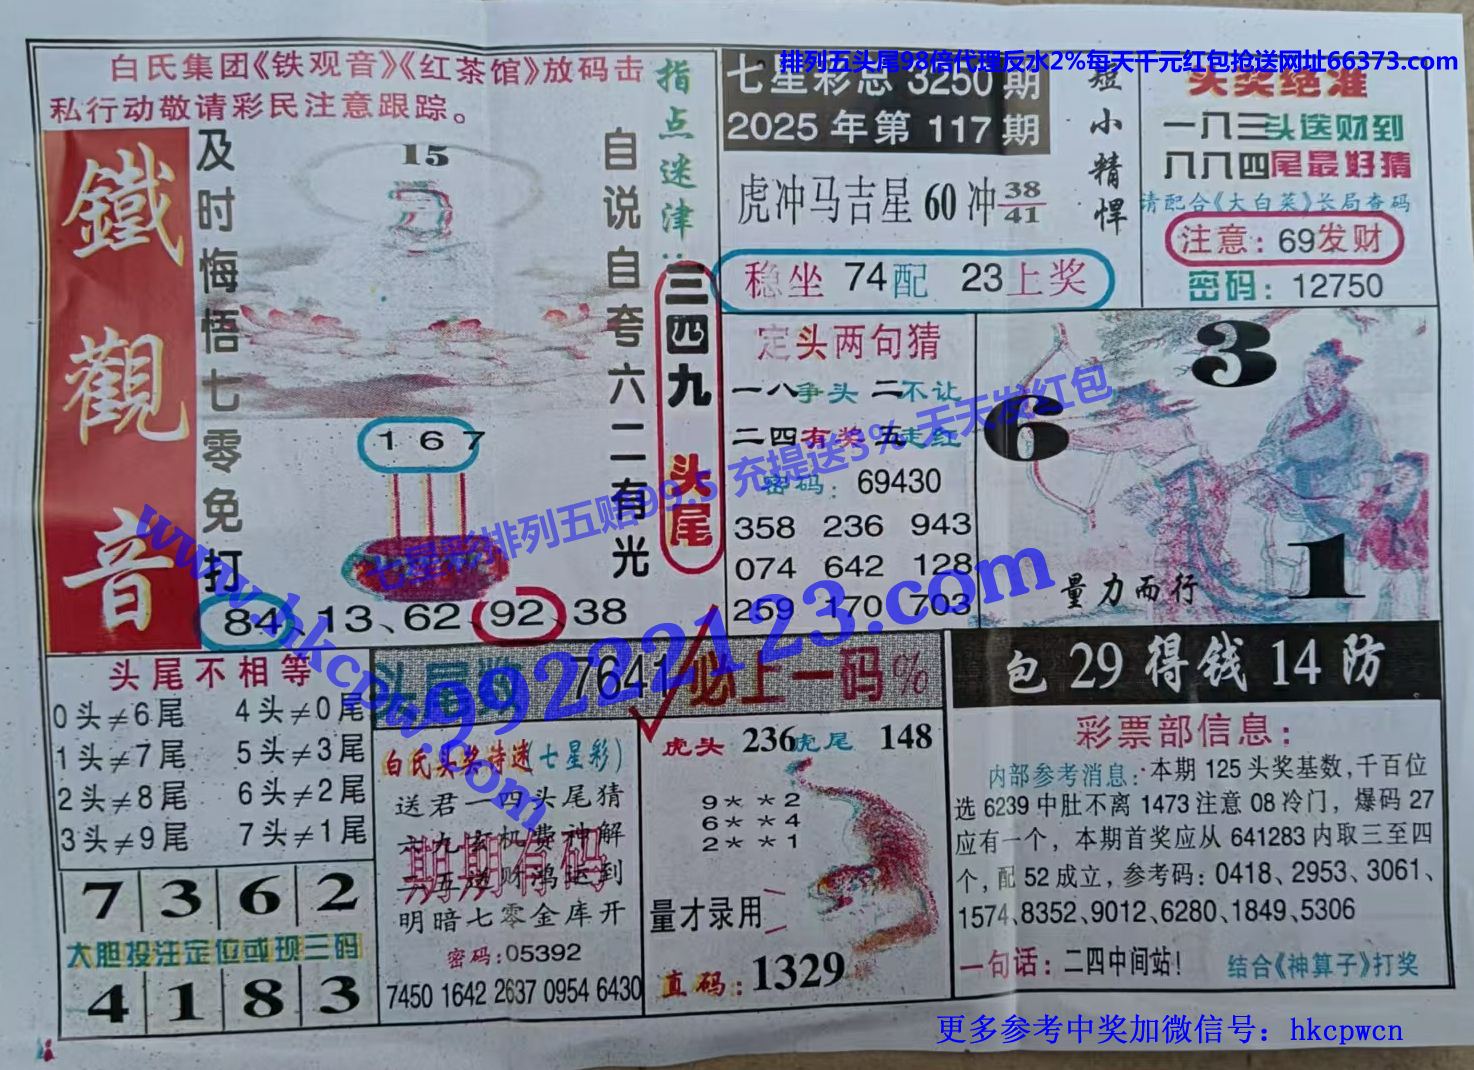 排列五头尾98倍代理反水2%每天千元红包抢送网址66373.com
白氏集团《铁观音》《红茶馆》放码击
私行动敬请彩民注意跟踪。
鐵觀音
及时悔悟七零免打
15
自说自夸六二有光
1 6 7
84、13、62、92、38
指点迷津:
三四九 头尾
七星彩总 3250 期
2025 年第 117 期
虎冲马吉星 60 冲 38
41
短小精悍
稳坐 74配 23上奖
头奖绝准
一八三头送财到
八八四尾最好猜
请配合《大白菜》长局查码
注意: 69发财
密码: 12750
定头两句猜
一八争头 二不让
二四有奖 五走红
密码: 69430
358 236 943
074 642 128
259 170 703
3
6
1
量力而行
七星彩排列五赔99.5 充提送3% 天天发红包
99222123.com
www.hkcpw.com
头尾不相等
0头≠6尾 4头≠0尾
1头≠7尾 5头≠3尾
2头≠8尾 6头≠2尾
3头≠9尾 7头≠1尾
7 3 6 2
大胆投注定位或现三码
4 1 8 3
头尾数 7641 必上一码%
白氏头奖诗迷(七星彩)
送君一四头尾猜
六九玄机费神解
二五送财鸿运到
明暗七零金库开
期期有码
密码:05392
7450 1642 2637 0954 6430
虎头 236 虎尾 148
9* *2
6* *4
2* *1
量才录用
直码: 1329
包 29 得钱 14 防
彩票部信息:
内部参考消息: 本期 125 头奖基数,千百位
选 6239 中肚不离 1473 注意 08 冷门, 爆码 27
应有一个, 本期首奖应从 641283 内取三至四
个, 配 52 成立, 参考码: 0418、2953、3061、
1574、8352、9012、6280、1849、5306
一句话: 二四中间站! 结合《神算子》打奖
更多参考中奖加微信号: hkcpwcn